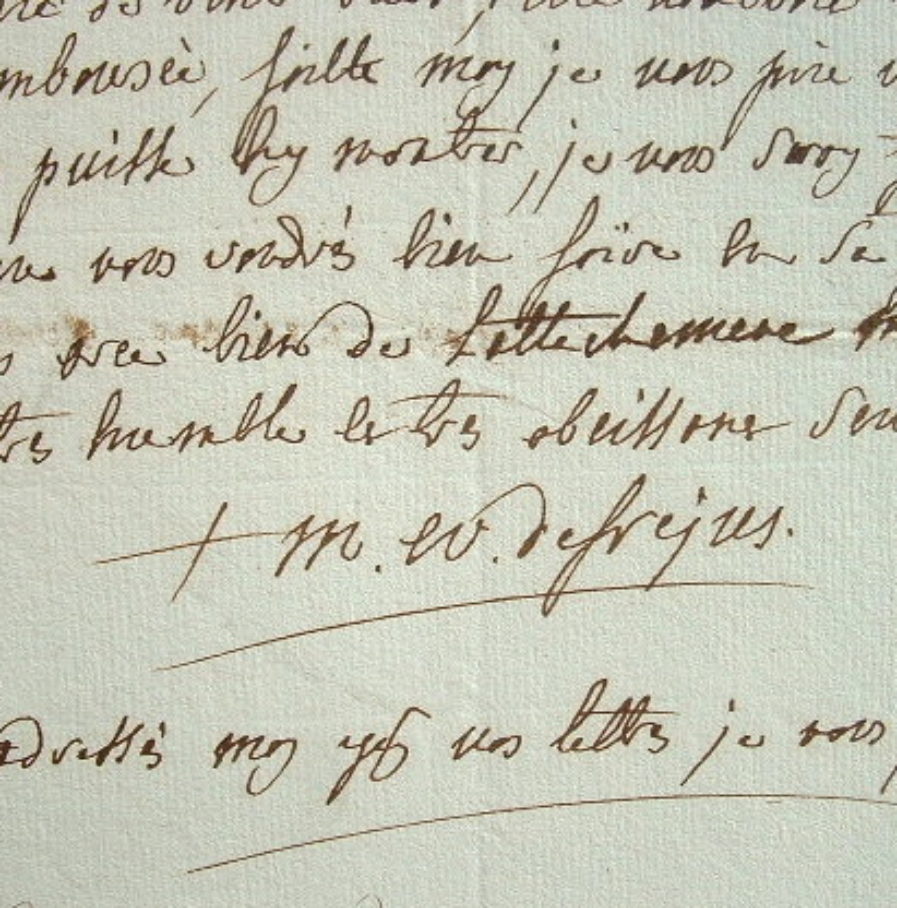 mbousèe, faitte moy je vous prie
puisse hy monter, je vous seroy
vous vondrés bien faire en
avec bien de l'attachement
tres humble et tres obeissant
+ m. ev. de frejus.
adressés moy ycy vos lettres je vous